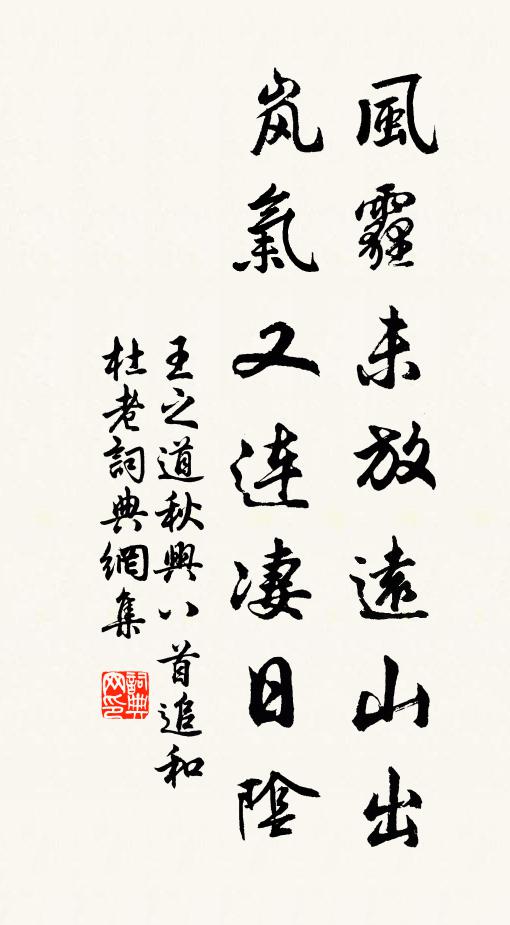 風霾未放遠山出
嵐氣又連淒日陰
王之道秋興八首追和
杜老詞典網集
詞典
网印